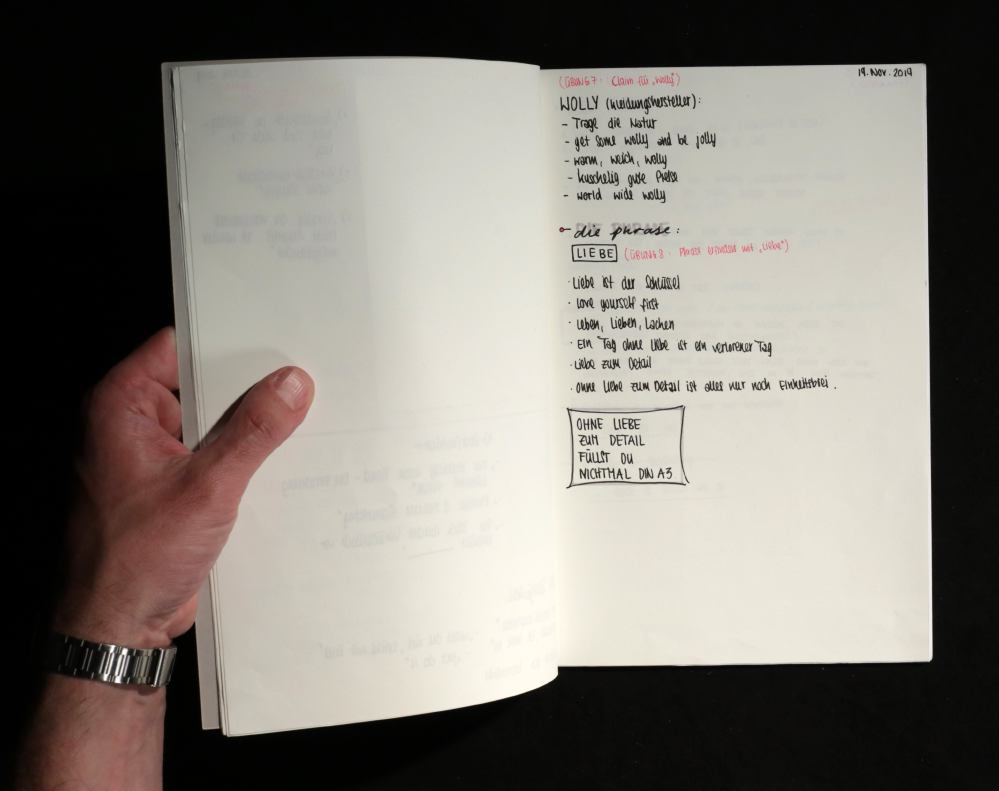 19. Nov. 2019
(ÜBUNG 7 · Claim für „Wolly")
WOLLY (Kleidungshersteller):
- Trage die Natur
- get some wolly and be jolly
- warm, weich, wolly
- kuschelig gute Preise
- world wide wolly
die phrase:
LIEBE (ÜBUNG 8 · Phrase erfinden mit „Liebe")
· Liebe ist der Schlüssel
· Love yourself first
· Leben, Lieben, Lachen
· Ein Tag ohne Liebe ist ein verlorener Tag
· Liebe zum Detail
· ohne Liebe zum Detail ist alles nur noch Einheitsbrei.
OHNE LIEBE
ZUM DETAIL
FÜLLST DU
NICHTMAL DIN A3